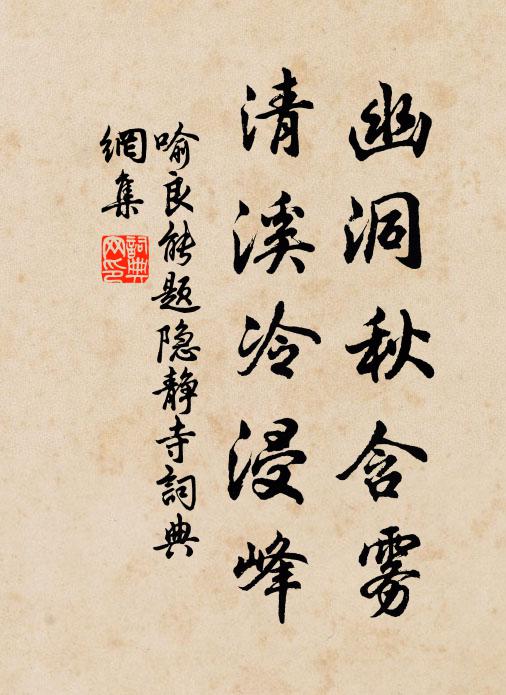 幽洞秋含雾
清溪冷浸峰
喻良能题隐静寺詞典
網集
詞典
网印